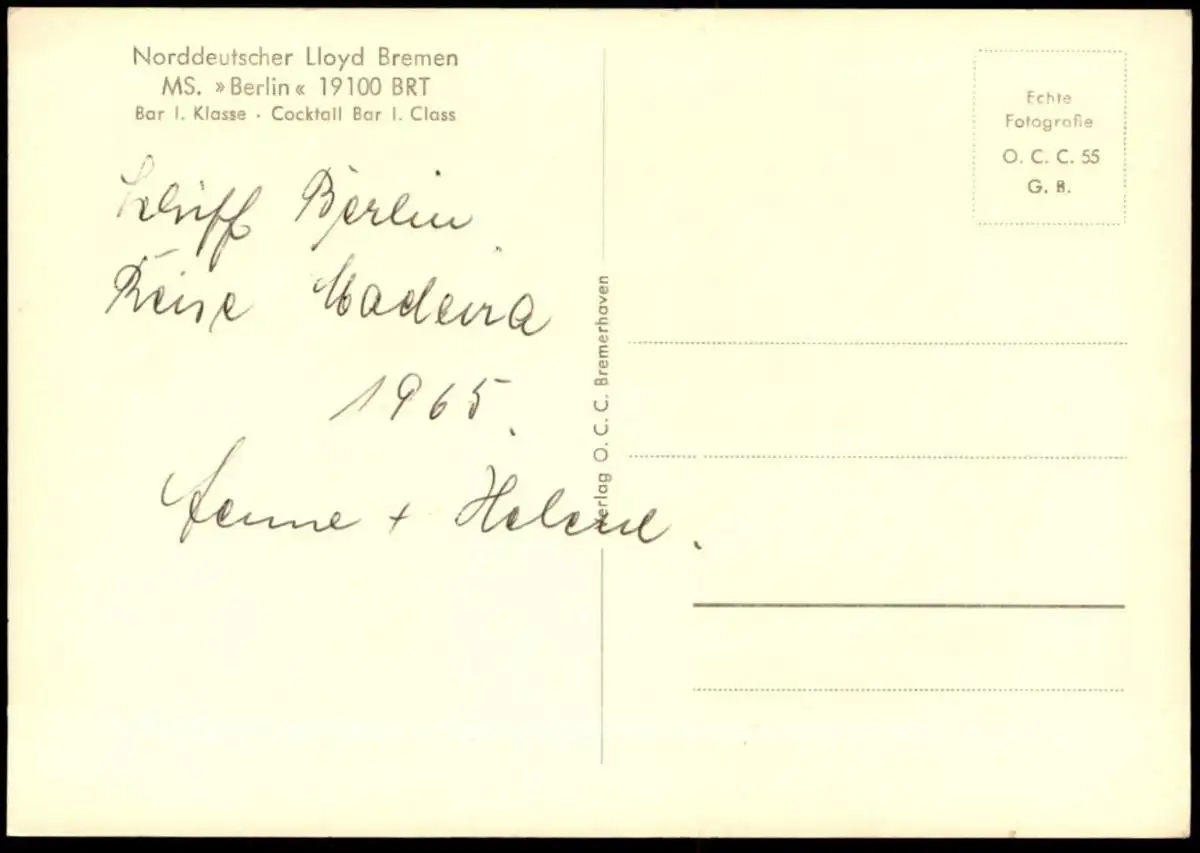 Norddeutscher Lloyd Bremen
MS. »Berlin« 19100 BRT
Bar I. Klasse · Cocktail Bar I. Class
Schiff Berlin.
Reise Madeira
1965.
+ Helene.
Verlag O. C. C. Bremerhaven
Echte
Fotografie
O. C. C. 55
G. B.